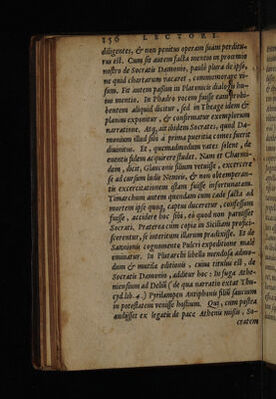 156 LECTORI.
diligentes, & non penitus operam suam perditu-
rus est. Cum sit autem facta mentio in proœmio
nostro de Socratis Dæmonio, paulò plura de ipso,
ne quid chartarum vacaret, commemorare vi-
sum. Fit autem passim in Platonicis dialogis hu-
ius mentio. In Phædro vocem fuisse eam prohi-
bentem aliquid dicitur, sed in Theage idem &
planius exponitur, & confirmatur exemplorum
narratione. Atq, ait ibidem Socrates, quod Dæ-
monium illud sibi à prima pueritia cœlitus fuerit
divinitus. Et, quemadmodum vates solent, de
eventu fidem acquirere studet. Nam et Charmi-
dem, dicit, Glauconis filium vetuisse, exercere
se ad cursum ludis Nemeis, & non obtemperan-
tis exercitationem istam fuisse infortunatam.
Timarchum autem quendam cum cæde facta ad
mortem ipse quoq, captus duceretur, confessum
fuisse, accidere hoc sibi, eò quod non paruisset
Socrati. Præterea cum copiæ in Siciliam profici-
scerentur, se interitum illarum prædixisse. Et de
Sannionis cognomento Pulcri expeditione malè
ominatur. In Plutarchi libello mendosa admo-
dum & mutila editionis, cuius titulus est, de
Socratis Dæmonio, additur hoc: In fuga Athe-
niensium ad Deliũ (de qua narratio extat Thu-
cyd.lib.4.) Pyrilampen Antiphonis filiũ saucium
in potestatem venisse hostium. Qui, cum postea
audisset ex legatis de pace Athenis missis, So-
cratem